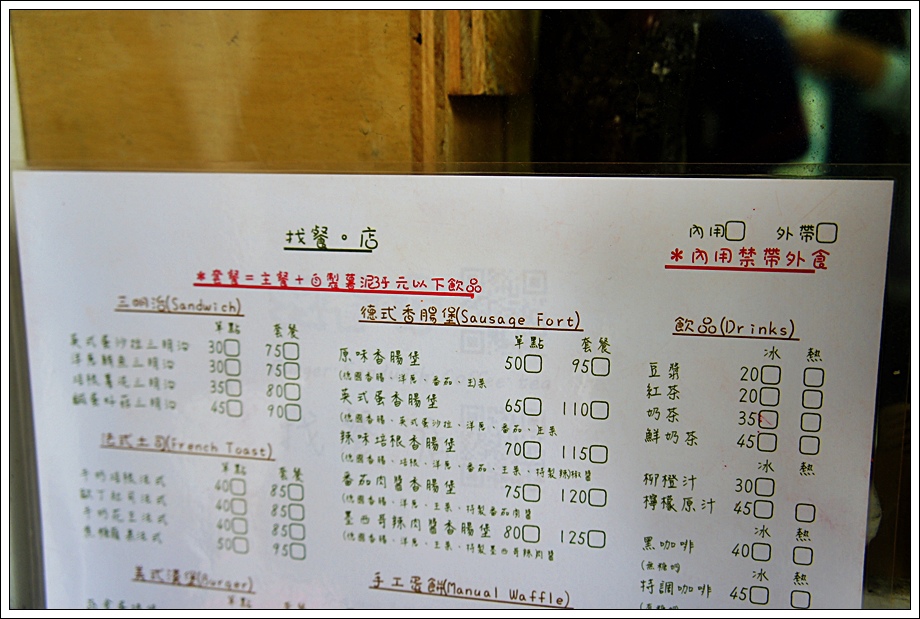 找餐。店
內用 外帶
*內用禁帶外食
*套餐=主餐+自製薯泥 元以下飲品
三明治(Sandwich)
單點 套餐
英式蛋沙拉三明治 30 75
洋蔥鮪魚三明治 30 75
培根薯泥三明治 35 80
鹹蛋 菇三明治 45 90
法式土司(French Toast)
單點 套餐
牛奶培根法式 40 85
起司法式 40 85
牛奶花生法式 40 85
焦糖 法式 50 95
美式漢堡(Burger)
單點 套餐
德式香腸堡(Sausage Fort)
單點 套餐
原味香腸堡 50 95
(德國香腸、洋蔥、番茄、生菜
英式蛋香腸堡 65 110
(德國香腸、英式蛋沙拉、洋蔥、番茄、生菜
辣味培根香腸堡 70 115
(德國香腸、培根、洋蔥、番茄、生菜、特製辣椒醬
番茄肉醬香腸堡 75 120
(德國香腸、洋蔥、生菜、特製番茄肉醬
墨西哥辣肉醬香腸堡 80 125
(德國香腸、洋蔥、生菜、特製墨西哥辣肉醬
手工蛋餅(Manual Waffle)
飲品(Drinks)
冰 熱
豆漿 20
紅茶 20
奶茶 35
鮮奶茶 45
冰 熱
柳橙汁 30
檸檬原汁 45
冰 熱
黑咖啡 40
(無糖
冰 熱
特調咖啡 45